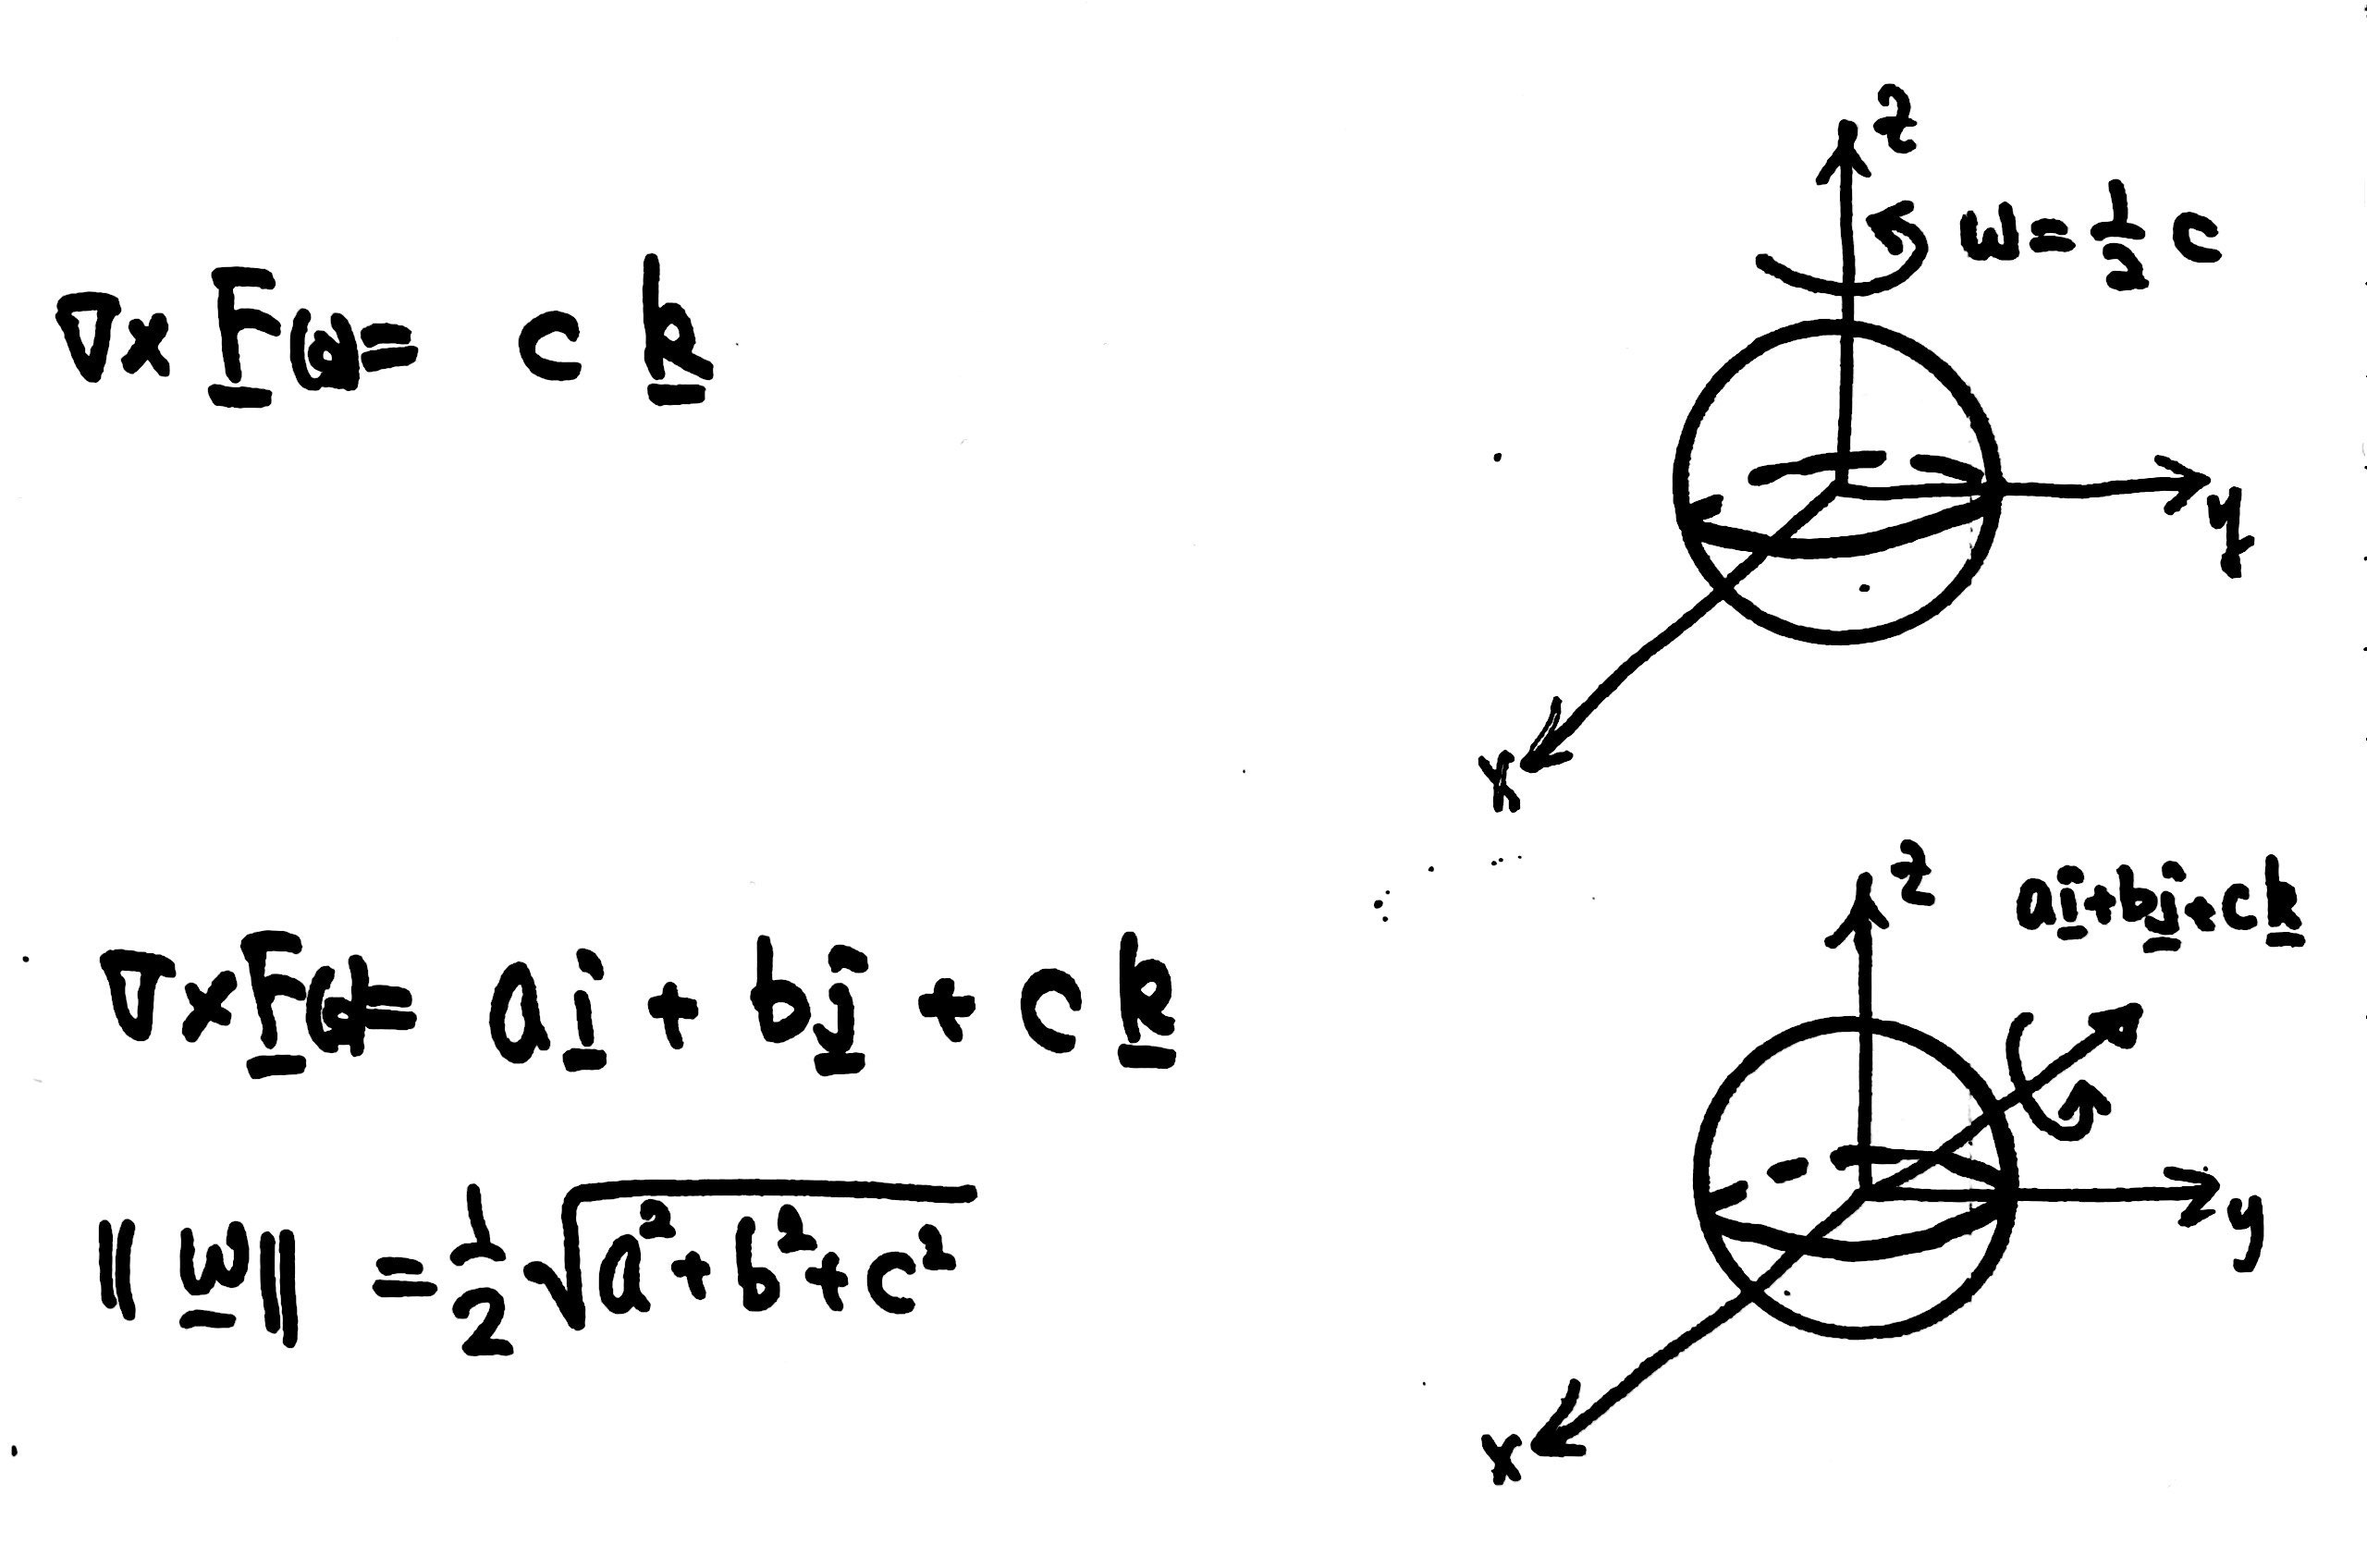 ∇×F(0)= c k
z
w=½ c
y
x
∇×F(0)= a i + b j + c k
‖w‖ = ½ √(a²+b²+c²)
z
ai+bj+ck
y
x